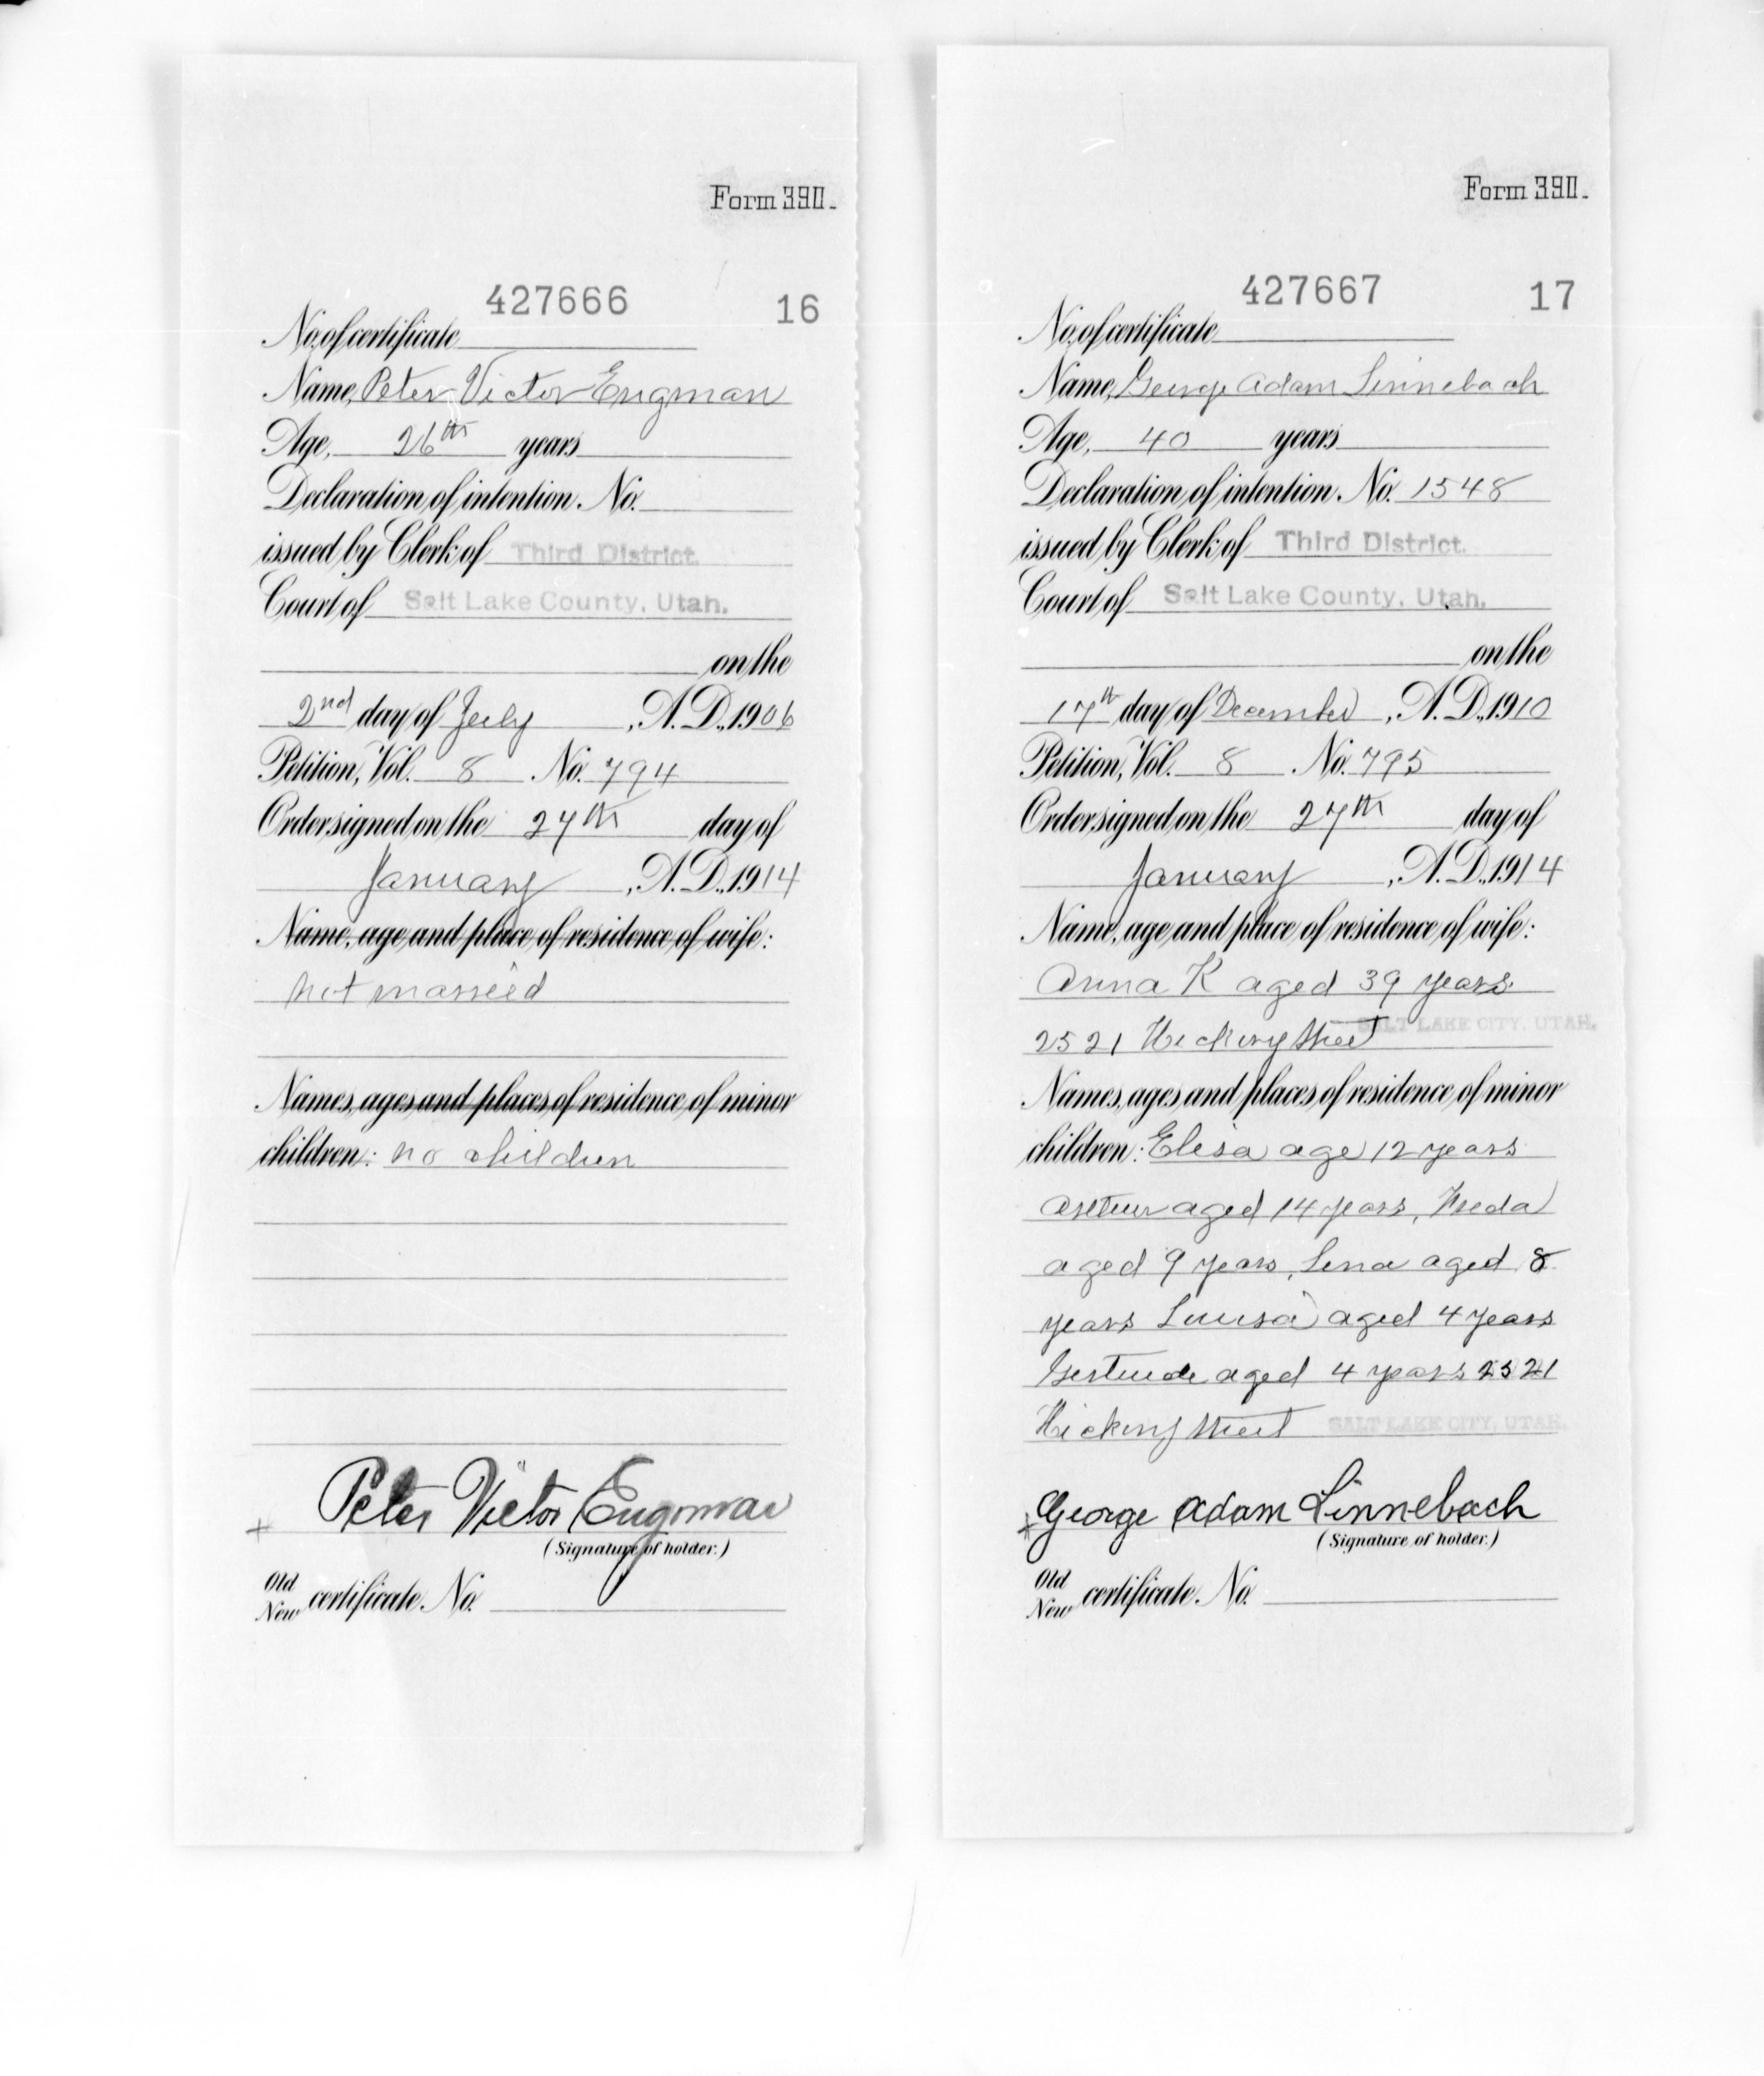 Form 390.
427666 16
No. of certificate
Name, Peter Victor Engman
Age, 26th years
Declaration of intention No.
issued by Clerk of Third District.
Court of Salt Lake County, Utah.
on the
2nd day of July, A.D., 1906
Petition, Vol. 8 No. 794
Order signed on the 27th day of
January, A.D., 1914
Name, age and place of residence of wife:
not marreid
Names, ages and places of residence of minor
children: no children
Peter Victor Engman
(Signature of holder.)
Old
New certificate No.
Form 390.
427667 17
No. of certificate
Name, George Adam Linnebach
Age, 40 years
Declaration of intention No. 1548
issued by Clerk of Third District.
Court of Salt Lake County, Utah.
on the
17th day of December, A.D., 1910
Petition, Vol. 8 No. 795
Order signed on the 27th day of
January, A.D., 1914
Name, age and place of residence of wife:
Anna K aged 39 years
2521 Hickory Street SALT LAKE CITY, UTAH.
Names, ages and places of residence of minor
children: Elisa age 12 years
Arthur aged 14 years, Freda
aged 9 years, Lena aged 8
years Louisa aged 4 years
Gertrude aged 4 years 2521
Hickory Street SALT LAKE CITY, UTAH.
George Adam Linnebach
(Signature of holder.)
Old
New certificate No.